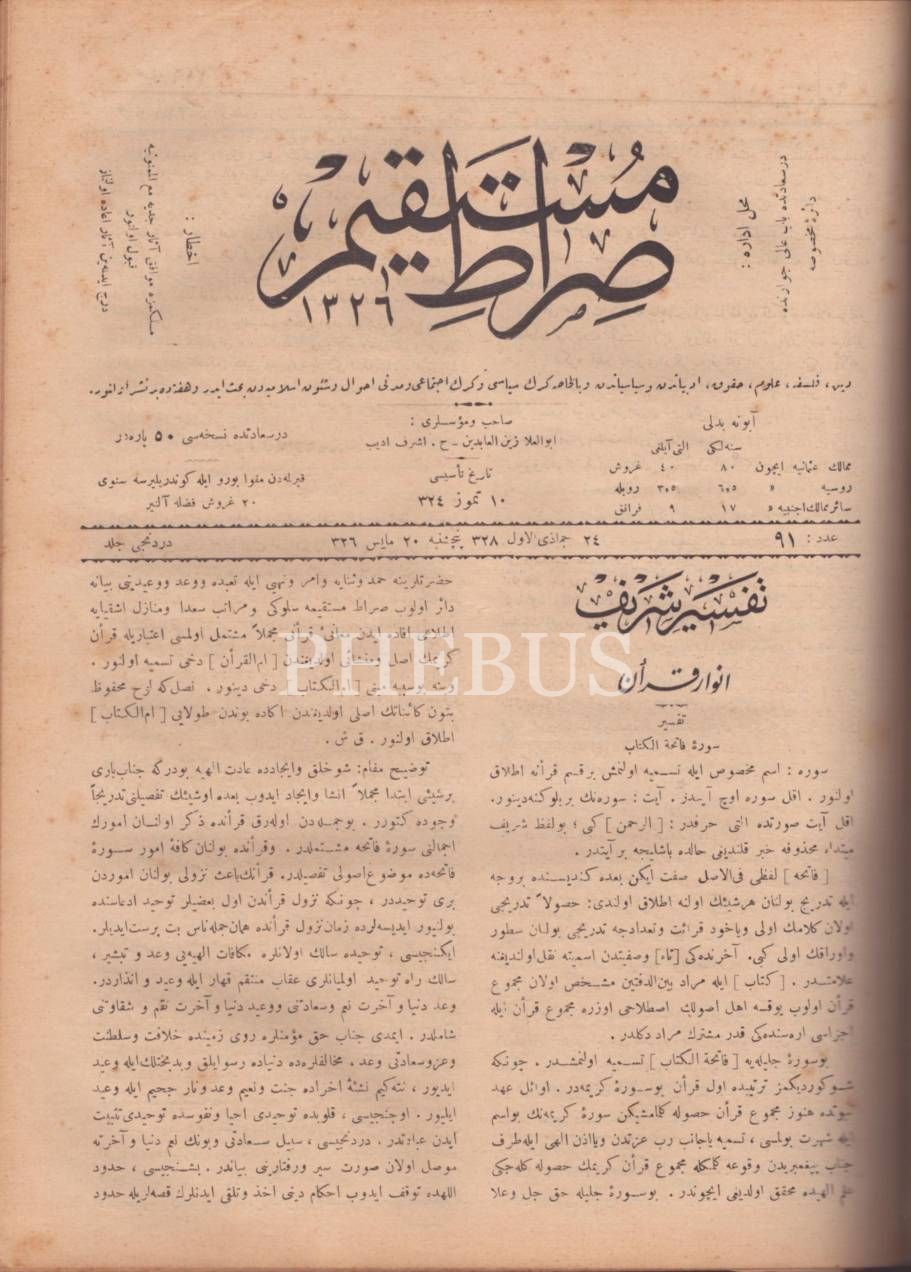 صراط مستقيم
١٣٢٦
محل اداره :
درسعادتده باب عالى جوارنده
دائرۀ مخصوصه
اخطار :
مسلكمزه موافق آثار جديه مع الممنونيه
قبول اولنور
درج ايدلمه‌ين آثار اعاده اولنماز
دين ، فلسفه ، علوم ، حقوق ، ادبياتدن وسياسياتدن وبالخاصه كرك سياسى وكرك اجتماعى ومدنى احوال وشئون اسلاميه‌دن بحث ايدر وهفته‌ده بر نشر اولنور.
آبونه بدلى
سنه‌لكى التى آيلغى
ممالك عثمانيه ايچون ٨٠ ٤٠ غروش
روسيه » ٦٫٥ ٣٫٥ روبله
سائر ممالك اجنبيه » ١٧ ٩ فرانق
صاحب ومؤسسلرى :
ابوالعلا زين العابدين ـ ح . اشرف اديب
تاريخ تأسيسى
١٠ تموز ٣٢٤
درسعادتده نسخه‌سى ٥٠ پاره‌در
قيرلمه‌دن مقوا بورو ايله كوندريليرسه سنوى
٢٠ غروش فضله آلنير
عدد : ٩١
٢٤ جماذى الاول ٣٢٨ پنجشنبه ٢٠ مايس ٣٢٦
دردنجى جلد
تفسير شريف
انوار قرآن
تفسير
سورۀ فاتحة الكتاب
سوره : اسم مخصوص ايله تسميه اولنمش بر قسم قرآنه اطلاق
اولنور . اقل سوره اوچ آيتدر . آيت : سوره‌نك بر بلوكنه دينور .
اقل آيت صورتده التى حرفدر : [ الرحمن ] كبى ؛ بولفظ شريف
مبتداء محذوفه خبر قلنديغى حالده باشليجه بر آيتدر .
[ فاتحه ] لفظى فى الاصل صفت ايكن بعده كنديسنده بروجه
ايله تدريج بولنان هر شيئك اولنه اطلاق اولندى : حصولاً تدريجى
اولان كلامك اولى وياخود قرائت وتعدادجه تدريجى بولنان سطور
واوراقك اولى كبى . آخرنده‌كى [تاء] وصفيتدن اسميته نقل اولنديغنه
علامتدر . [ كتاب ] ايله مراد بين الدفتين مشخص اولان مجموع
قرآن اولوب يوقسه اهل اصولك اصطلاحى اوزره مجموع قرآن ايله
اجزاسى اره‌سنده‌كى قدر مشترك مراد دكلدر .
بوسورۀ جليله‌يه [ فاتحة الكتاب ] تسميه اولنمشدر . چونكه
شو كورديكمز ترتيبده اول قرآن بوسورۀ كريمه‌در . اوائل عهد
نبوتده هنوز مجموع قرآن حصوله كلمامشيكن سورۀ كريمه‌نك بواسم
ايله شهرت بولمسى ، تسميه ياجانب رب عزتدن وياذن الهى ايله طرف
جناب پيغمبريدن وقوعه كلمكله مجموع قرآن كريمك حصوله كله‌جكى
علم الهيده محقق اولديغى ايچوندر . بوسورۀ جليله حق جل وعلا
حضرتلرينه حمد وثنايه وامر ونهيى ايله تعبده ووعد ووعيدينى بيانه
دائر اولوب صراط مستقيمه سلوكى ومراتب سعدا ومنازل اشقيايه
اطلاعى افاده ايدن معانئ قرآنى مجملاً مشتمل اولمسى اعتباريله قرآن
كريمك اصل ومنشائى اولديغندن [ ام القرآن ] دخى تسميه اولنور .
وينه بوسببه مبنى [ ام الكتاب ] دخى دينور . نصل كه لوح محفوظ
بتون كائناتك اصلى اولديغندن اكاده بوندن طولايى [ ام الكتاب ]
اطلاق اولنور . ق ش .
توضيح مقام : شو خلق وايجادده عادت الهيه بودركه جناب بارى
برشيئى ابتدا مجملاً انشا وايجاد ايدوب بعده اوشيئك تفصيلنى تدريجاً
وجوده كتورر . بوجمله‌دن اوله‌رق قرآنده ذكر اولنان امورك
اجمالنى سورۀ فاتحه مشتملدر . وقرآنده بولنان كافۀ امور سورۀ
فاتحه‌ده موضوع اصولى تفصيلدر . قرآنك باعث نزولى بولنان اموردن
برى توحيددر ، چونكه نزول قرآندن اول بعضيلر توحيد ادعاسنده
بولنيور ايديسه‌لرده زمان نزول قرآنده همان جمله ناس بت پرست ايديلر .
ايكنجيسى ، توحيده سالك اولانلره مكافات الهيه‌يى وعد و تبشير ،
سالك راه توحيد اوليانلرى عقاب منتقم قهار ايله وعيد و انذاردر .
وعد دنيا و آخرت نعم وسعادتنى ووعيد دنيا و آخرت نقم و شقاوتنى
شاملدر . ايمدى جناب حق مؤمنلره روى زمينده خلافت وسلطنت
وعز وسعادتى وعد . مخالفلره‌ده دنياده رسوايلق وبدبختلك ايله وعيد
ايديور ، نته‌كيم نشئۀ اخراده جنت ونعيم وعد ونار جحيم ايله وعيد
ايليور . اوچنجيسى ، قلوبده توحيدى احيا ونفوسده توحيدى تثبيت
ايدن عباداتدر . دردنجيسى ، سبيل سعادتى وبونك نعم دنيا و آخرته
موصل اولان صورت سير ورفتارينى بياندر . بشنجيسى ، حدود
اللهده توقف ايدوب احكام دينى اخذ وتلقى ايدنلرك قصه‌لريله حدود
PHEBUS